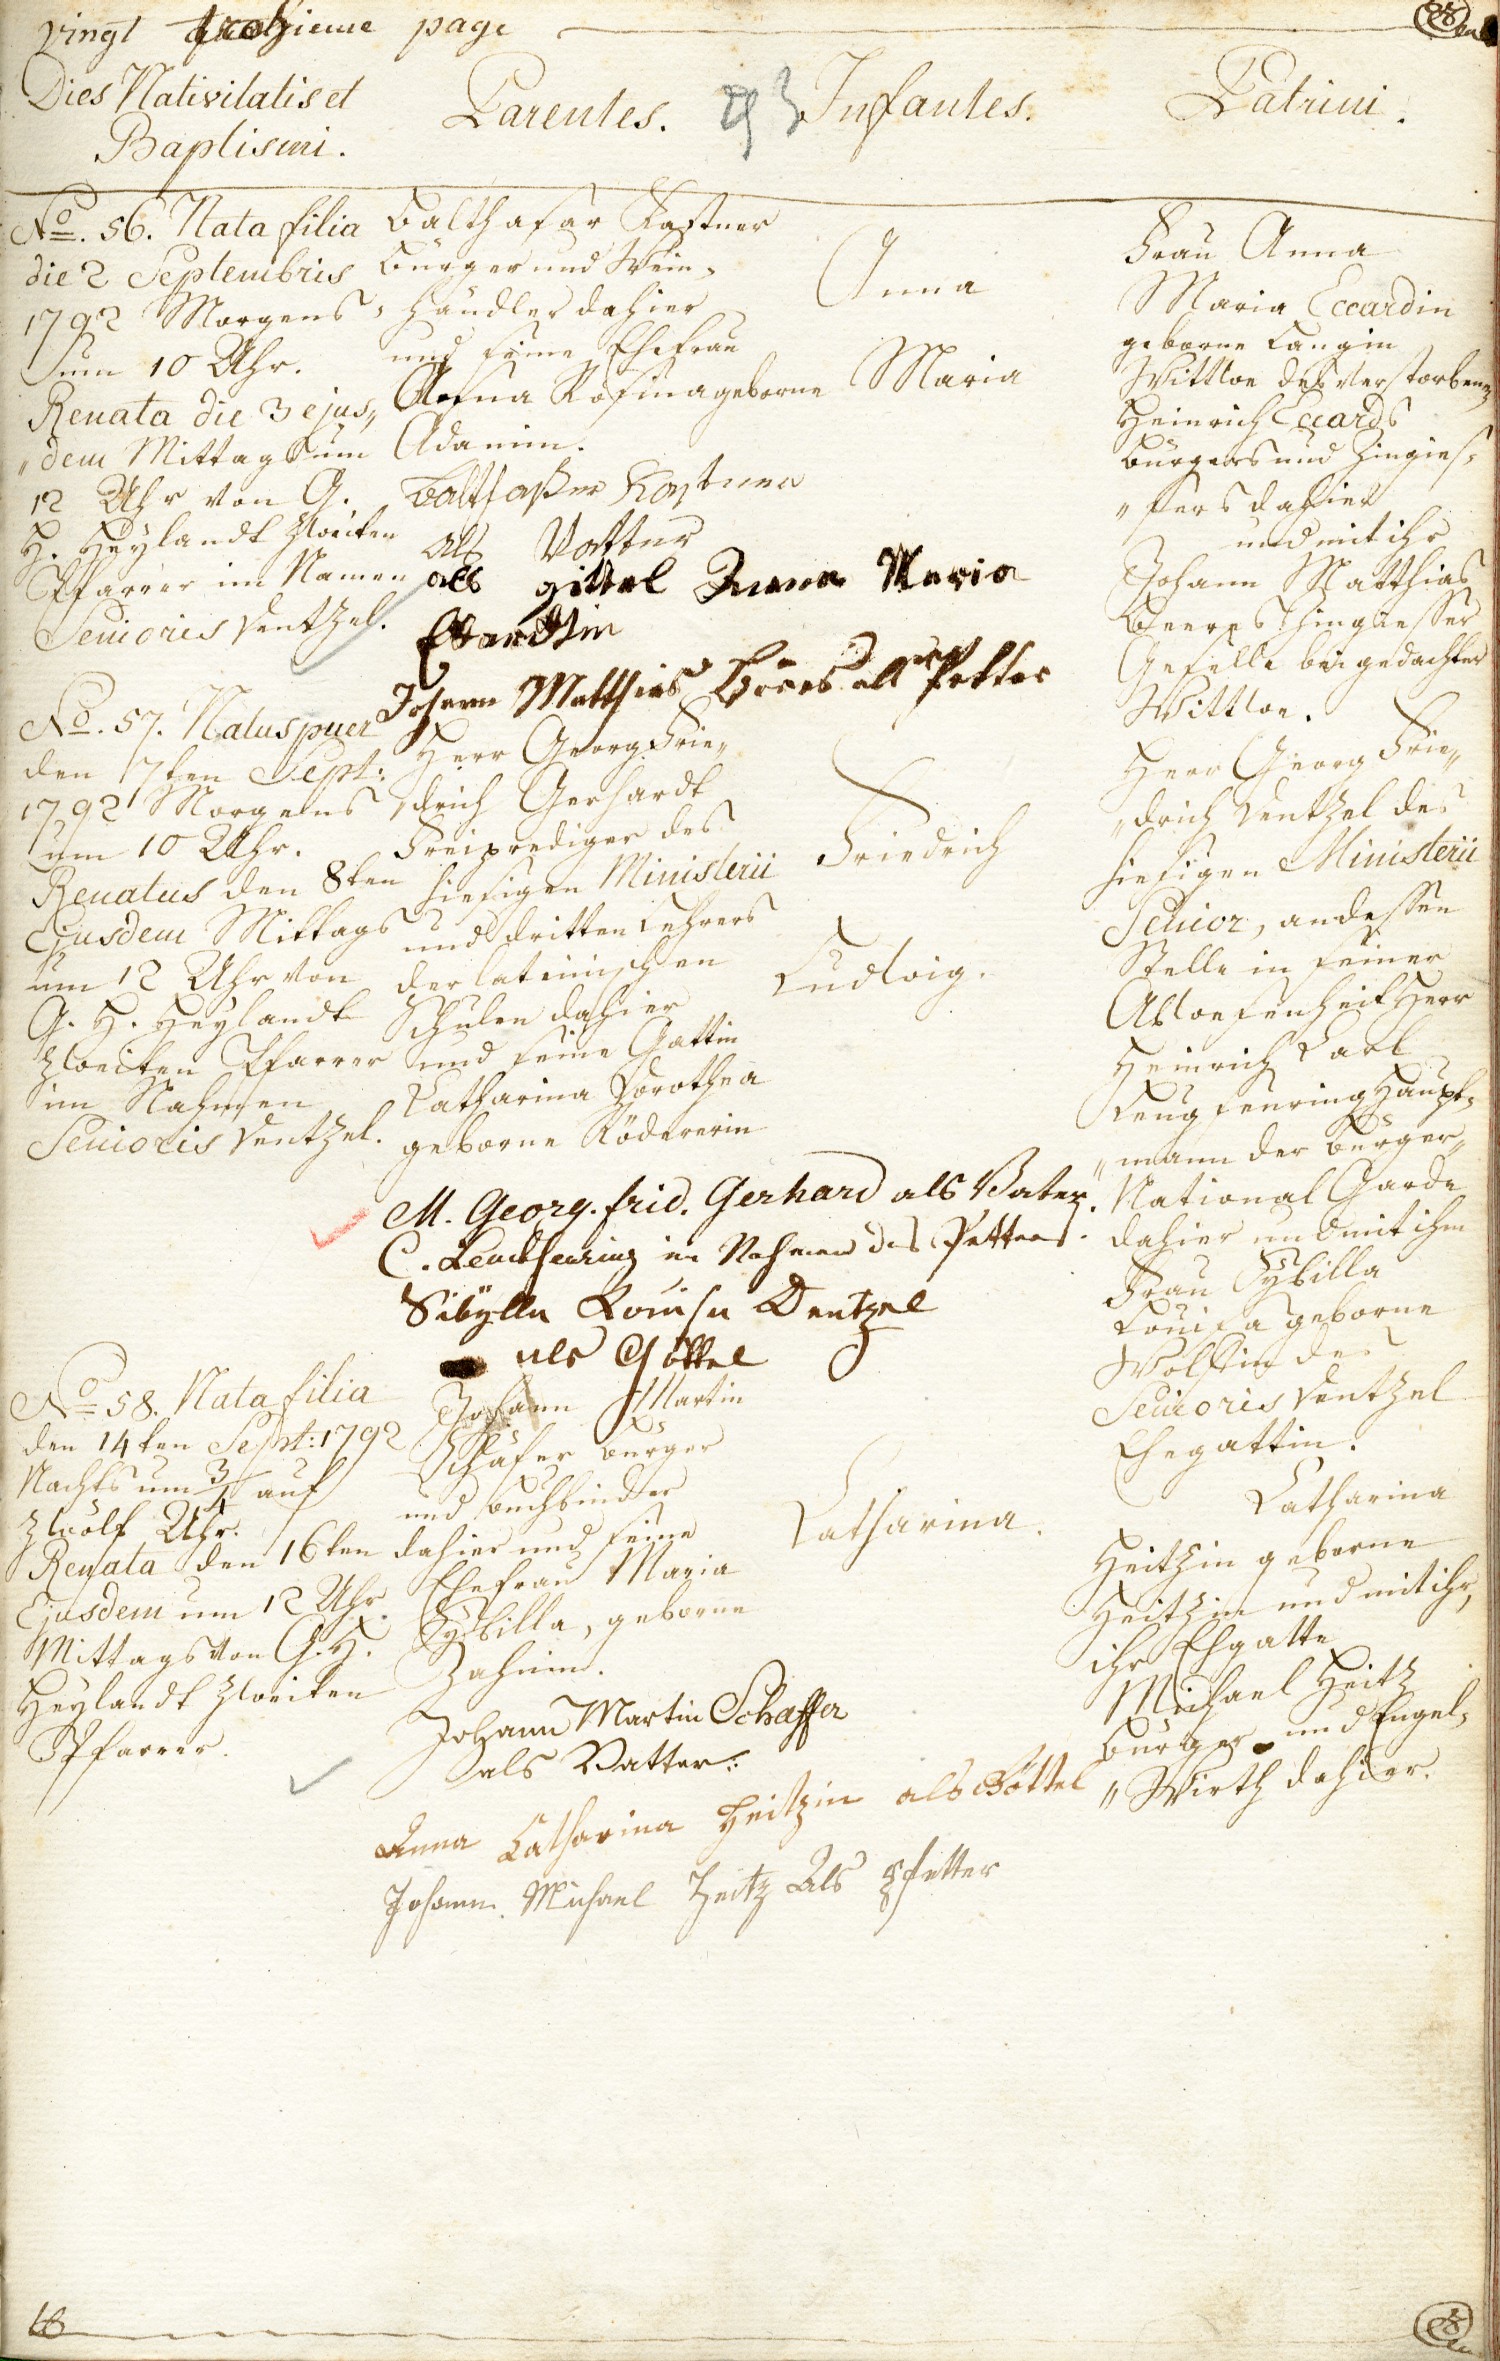 vingt troizieme page
Dies Nativitatis et
Baptismi.
Parentes.
23
Infantes.
Patrini.
No. 56. Nata filia
die 2 Septembris
1792 Morgens
um 10 Uhr.
Renata die 3 ejus„
„dem Mittags um
12 Uhr von G.
H. Heylandt zweiten
Pfarrer im Namen
Senioris Dentzel.
Balthasar Kastner
Burger und Wein„
händler dahier
und seine Ehefrau
Anna Rosina geborne
Adamin.
Balthaßar Kastner
als Vatter
als gittel Anna Maria
Eccardtin
Johann Matthias Beeres als Petter
Anna
Maria
Frau Anna
Maria Eccardin
geborne Langin
Wittwe des verstorbenen
Heinrich Eccards
Burgers und Zingies„
„sers dahier
und mit ihr
Johann Matthias
Beeres Zingiesser
Geselle bei gedachter
Wittwe.
No. 57. Natus puer
den 7ten Sept:
1792 Morgens
um 10 Uhr.
Renatus den 8ten
Ejusdem Mittags
um 12 Uhr von
G. H. Heylandt
zweiten Pfarrer
im Nahmen
Senioris Dentzel.
Herr Georg Frie„
„drich Gerhardt
Freiprediger des
hiesigen Ministerii
und dritten Lehrers
der lateinischen
Schulen dahier
und seine Gattin
Catharina Dorothea
geborne Rödererin
M. Georg. frid. Gerhard als Vater.
C. Leuchsenring im Nahmen des Petters.
Sibÿlla Louisa Dentzel
als Göttel
Friedrich
Ludwig.
Herr Georg Frie„
„drich Dentzel des
hiesigen Ministerii
Senior, an dessen
Stelle in seiner
Abwesenheit Herr
Heinrich Carl
Leuchsenring Haupt„
„mann der Burger„
National Garde
dahier und mit ihm
Frau Sybilla
Louisa geborne
Wolffin des
Senioris Dentzel
Ehegattin.
No 58. Nata filia
den 14ten Sept: 1792
Nachts um 3/4 auf
zwölf Uhr.
Renata den 16ten
Ejusdem um 12 Uhr
Mittags von G. H.
Heylandt zweiten
Pfarrer.
Johann Martin
Schäfer Burger
und Buchbinder
dahier und seine
Ehefrau Maria
Sybilla, geborne
Zahnin.
Johann Martin Schaffer
als Vatter:
Anna Catharina Heitzin als Göttel
Johann Michael Heitz Als Pfetter
Catharina.
Catharina
Heitzin geborne
Heitzin und mit ihr,
ihr Ehgatte
Michael Heitz
Burger und Engel„
„Wirth dahier.